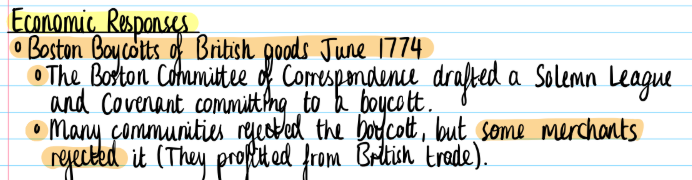 Economic Responses
• Boston Boycotts of British goods June 1774
• The Boston Committee of Correspondence drafted a Solemn League
and Covenant committing to a boycott.
• Many communities rejected the boycott, but some merchants
rejected it (They profitted from British trade).